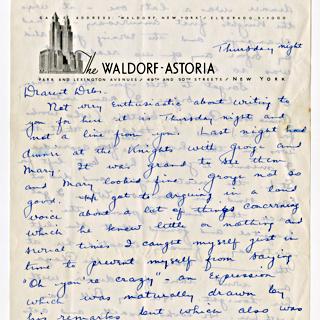 CABLE ADDRESS: "WALDORF, NEW YORK" ELDORADO 5-3000
Thursday night
The WALDORF-ASTORIA
PARK AND LEXINGTON AVENUES / 49TH AND 50TH STREETS / NEW YORK
Dearest Debs.
Not very enthusiastic about writing to
you for here it is Thursday night and
not a line from you. Last night had
dinner at the Knights with Groge and
Mary. It was grand to see them
and Mary looked fine — Groge not so
good. got to arguing in a loud
voice about a lot of things concerning
which he knew little or nothing and
several times I caught myself just in
time to prevent myself from saying
"Oh - you're crazy" - an expression
which was naturally drawn by
his remarks but which also was